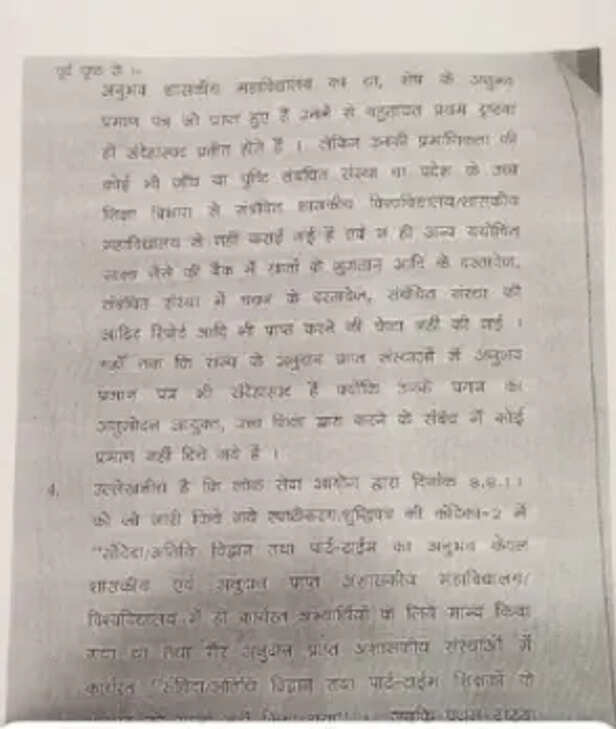 पूर्व पृष्ठ से :-
अनुभव शासकीय महाविद्यालय का था, शेष के अनुभव
प्रमाण पत्र जो प्राप्त हुए हैं उनमें से बहुतायत प्रथम दृष्टया
ही संदेहास्पद प्रतीत होते हैं । लेकिन उनकी प्रमाणिकता की
कोई भी जाँच या पुष्टि संबंधित संस्था या प्रदेश के उच्च
शिक्षा विभाग से संबंधित शासकीय विश्वविद्यालय/शासकीय
महाविद्यालय से नहीं कराई गई है एवं न ही अन्य
साक्ष्य जैसे की बैंक में खातों के भुगतान आदि के दस्तावेज,
संबंधित संस्था में चयन के दस्तावेज, संबंधित संस्था की
आडिट रिपोर्ट आदि भी प्राप्त करने की चेष्टा नहीं की गई ।
यहाँ तक कि राज्य के अनुदान प्राप्त संस्थाओं में अनुभव
प्रमाण पत्र भी संदेहास्पद है क्योंकि उनके चयन का
अनुमोदन आयुक्त, उच्च शिक्षा द्वारा करने के संबंध में कोई
प्रमाण नहीं दिये गये हैं ।
4. उल्लेखनीय है कि लोक सेवा आयोग द्वारा दिनांक 8.8.11
को जो जारी किये गये स्पष्टीकरण/शुद्धिपत्र की कंडिका-2 में
"संविदा/अतिथि विद्वान तथा पार्ट-टाईम का अनुभव केवल
शासकीय एवं अनुदान प्राप्त अशासकीय महाविद्यालय/
विश्वविद्यालय में ही कार्यरत अभ्यार्थियों के लिये मान्य किया
गया था तथा गैर अनुदान प्राप्त अशासकीय संस्थाओं में
कार्यरत "संविदा/अतिथि विद्वान तथा पार्ट-टाईम शिक्षकों के